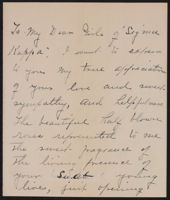 To My Dear Girls of "Sigma
Kappa". I want to express
to you my true appreciation
of your love and sweet
sympathy, and helpfulness
The beautiful half blown
roses represented to me
the sweet fragrance of
the living presence of
your sweet young
lives, just opening